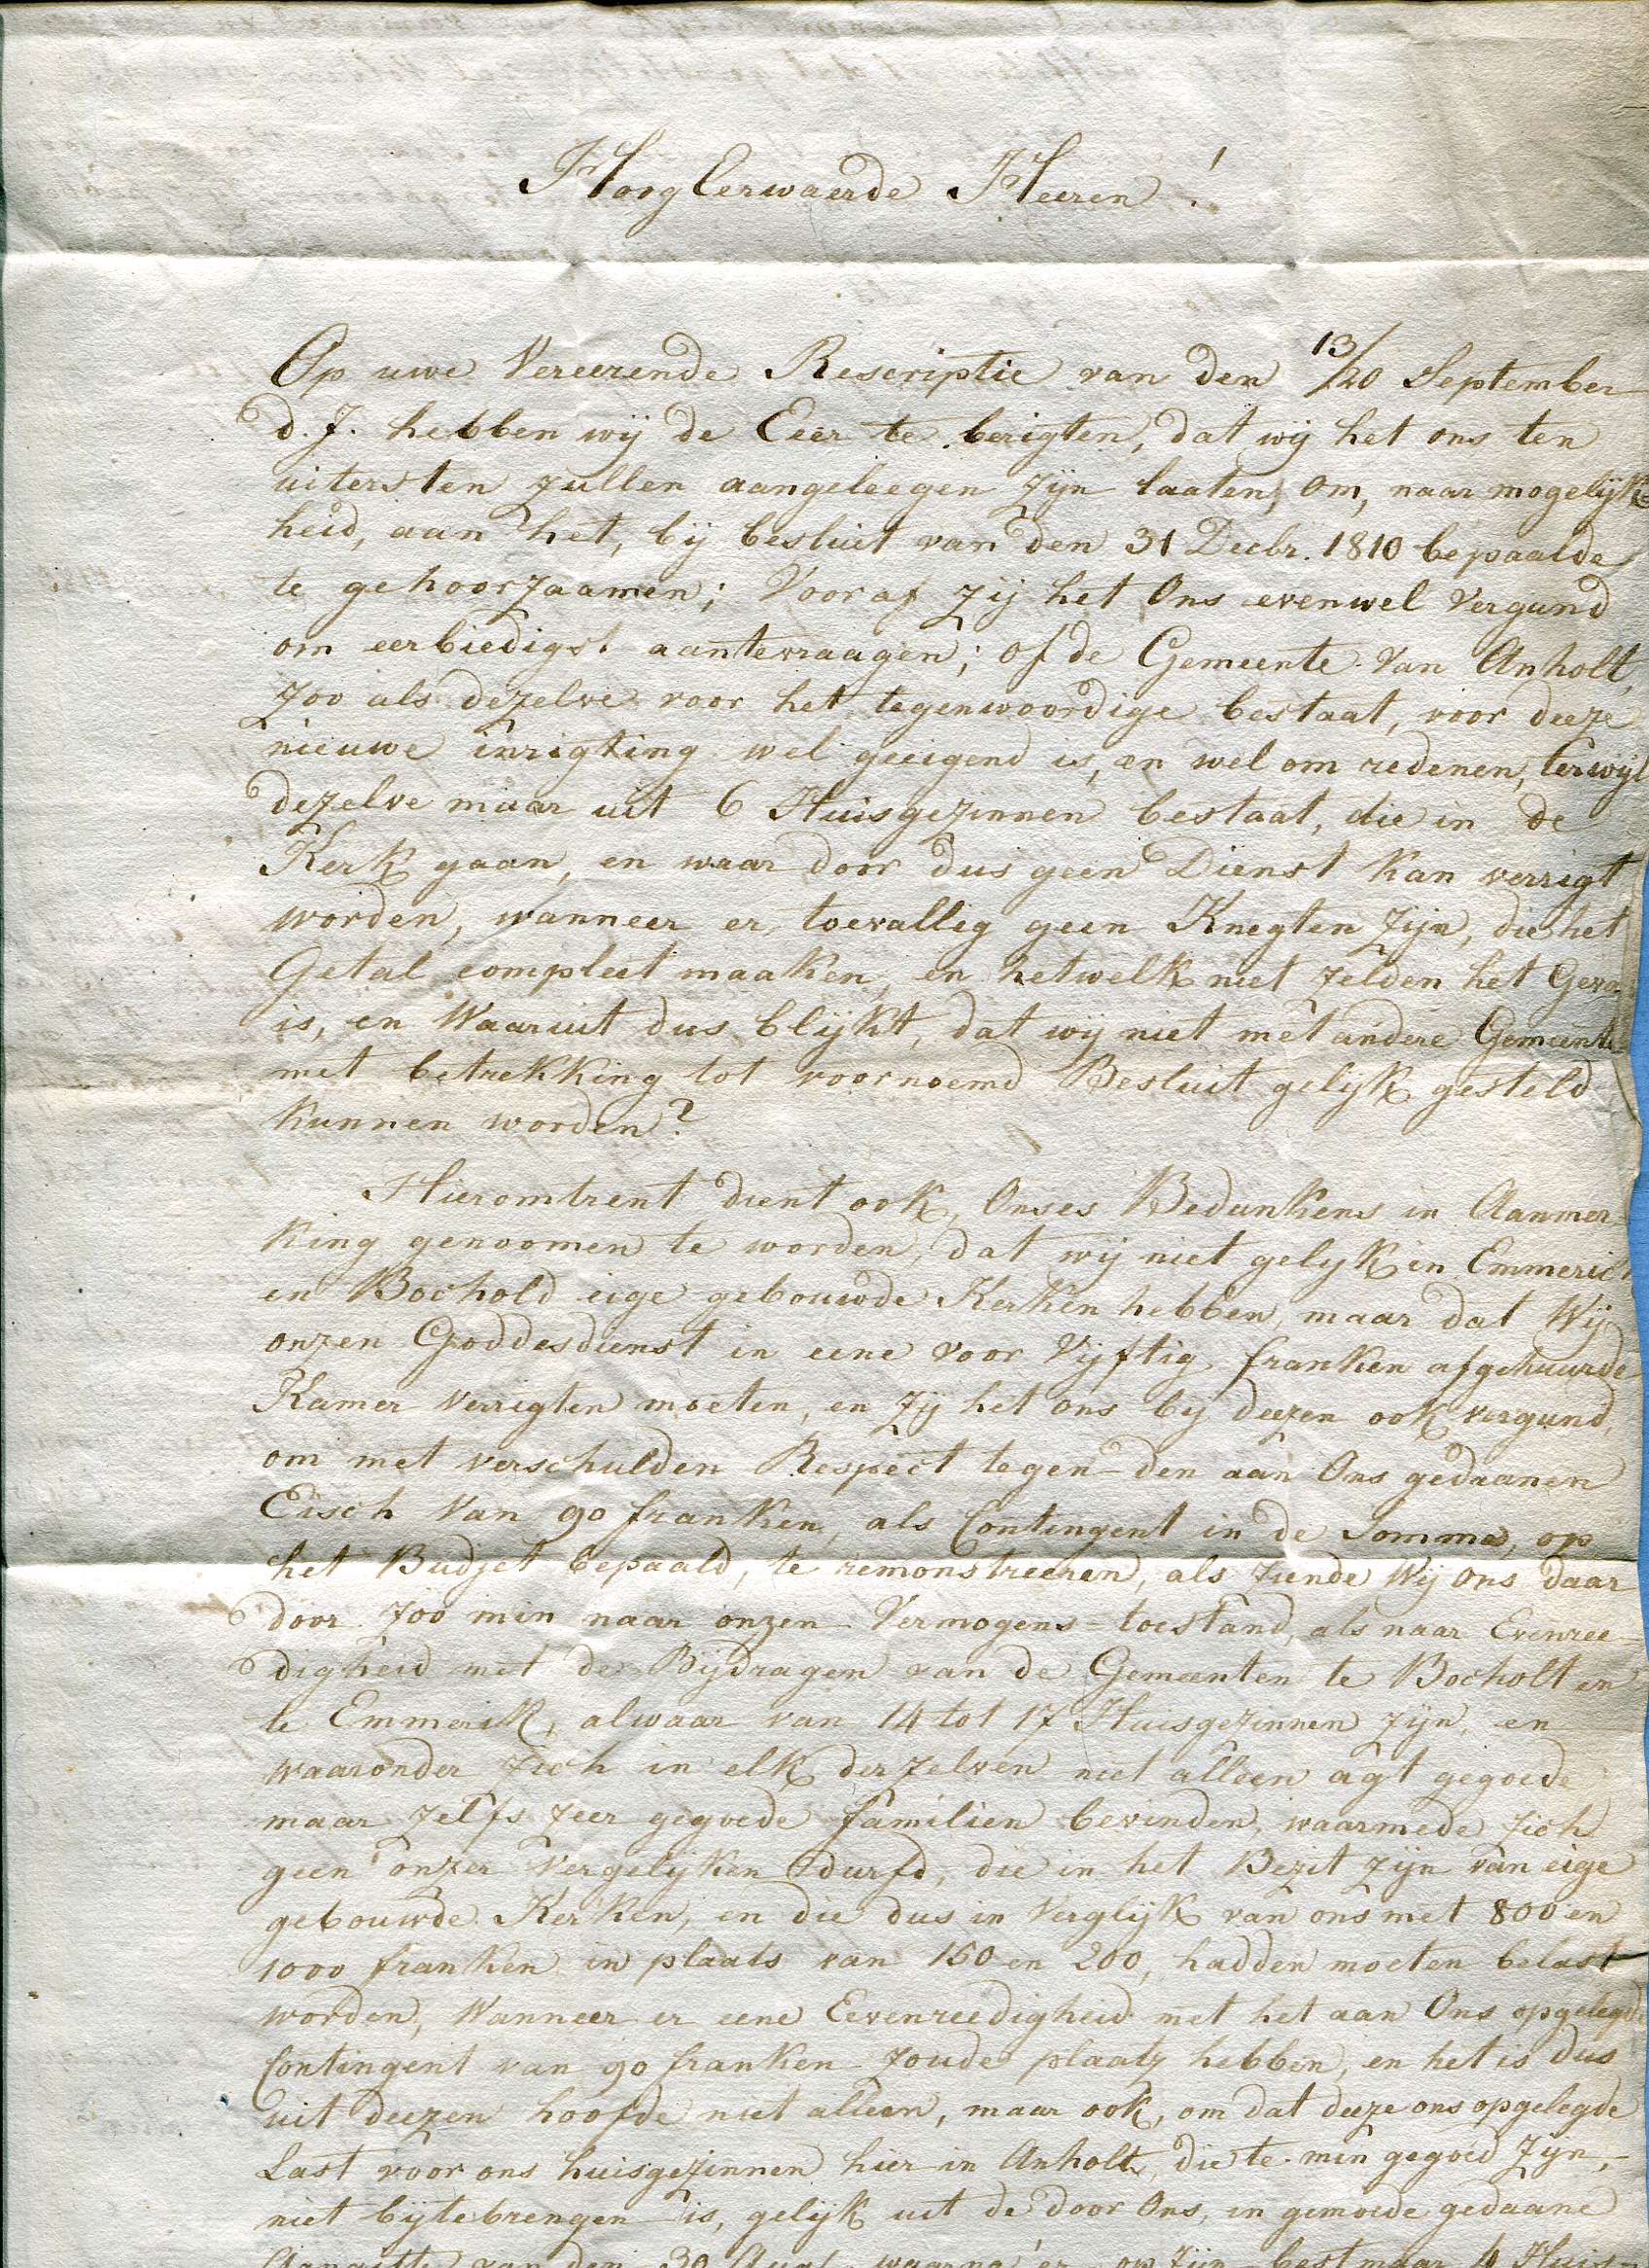 HoogEerwaerde Heeren!
Op uwe Vereerende Rescriptie van den 13/20 September
d. J. hebben wij de Eeer te berigten, dat wij het ons ten
uitersten zullen aangeleegen zijn laaten, om, naar mogelijk
heid, aan het, bij besluit van den 31 Decbr. 1810 bepaalde
te gehoorzaamen; Vooraf zij het Ons evenwel Vergund
om eerbiedigst aantevraagen; of de Gemeente van Anholt,
zoo als dezelve voor het tegenwoordige bestaat, voor deeze
nieuwe inrigting wel geeigend is, en wel om redenen, terwijl
dezelve maar uit 6 Huisgezinnen bestaat, die in de
Kerk gaan, en waar door dus geen Dienst kan verrigt
worden, wanneer er toevallig geen Knegten zijn, die het
Getal compleet maaken, en hetwelk niet zelden het Geva
is, en Waaruit dus blijkt, dat wij niet met andere Gemeente
met betrekking tot voornoemd Besluit gelijk gesteld
kunnen worden?
Hieromtrent dient ook, Onses Bedunkens in Aanmer
king genoomen te worden, dat wij niet gelyk in Emmerich
en Bocholt eige gebouwde Kerken hebben, maar dat Wij
onzen Goddesdienst in eene voor Vijftig franken afgehuurde
Kamer Verrigten moeten, en zij het ons bij deezen ook vergund,
om met verschulden Respect tegen den aan Ons gedaanen
Eisch Van 90 franken, als Contingent in de Somma, op
het Budjet bepaald, te remonstreeren, als ziende Wij Ons daar
door zoo min naar onzen Vermogens-toestand, als naar Evenree-
digheid met de Bijdragen van de Gemeenten te Bocholt en
te Emmerik, alwaar van 14 tot 17 Huisgezinnen zijn, en
waaronder zich in elk derzelven niet alleen agt gegoede
maar zelfs zeer gegoede familien bevinden, waarmede zich
geen onzer Vergelijken durfd, die in het Bezit zijn van eige
gebouwde Kerken, en die dus in Verglijk van ons met 800 en
1000 franken in plaats van 150 en 200, hadden moeten belast
worden, Wanneer er eene Eevenreedigheid met het aan Ons opgelegde
Contingent van 90 franken zoude plaatz hebben, en het is dus
uit deezen hoofde niet alleen, maar ook, om dat deeze ons opgelegde
Last voor ons huisgezinnen hier in Anholt, die te min gegoed zijn,
niet bijtebrengen is, gelijk uit de door Ons, in gemoede gedaane
van den 30 waarna er op zijn best maar 4